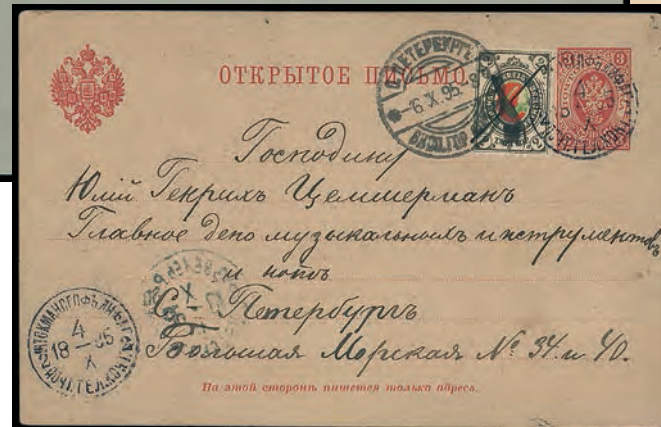 ОТКРЫТОЕ ПИСЬМО.
С.ПЕТЕРБУРГЪ
-6.X.95
3
4
X
Господину
Юлій Генрихъ Цеммерманъ
Главное депо музыкальныхъ инструментовъ
и нотъ
С. Петербургъ
Большая Морская № 34 и 40.
4
18-95
X
На этой сторонѣ пишется только адресъ.